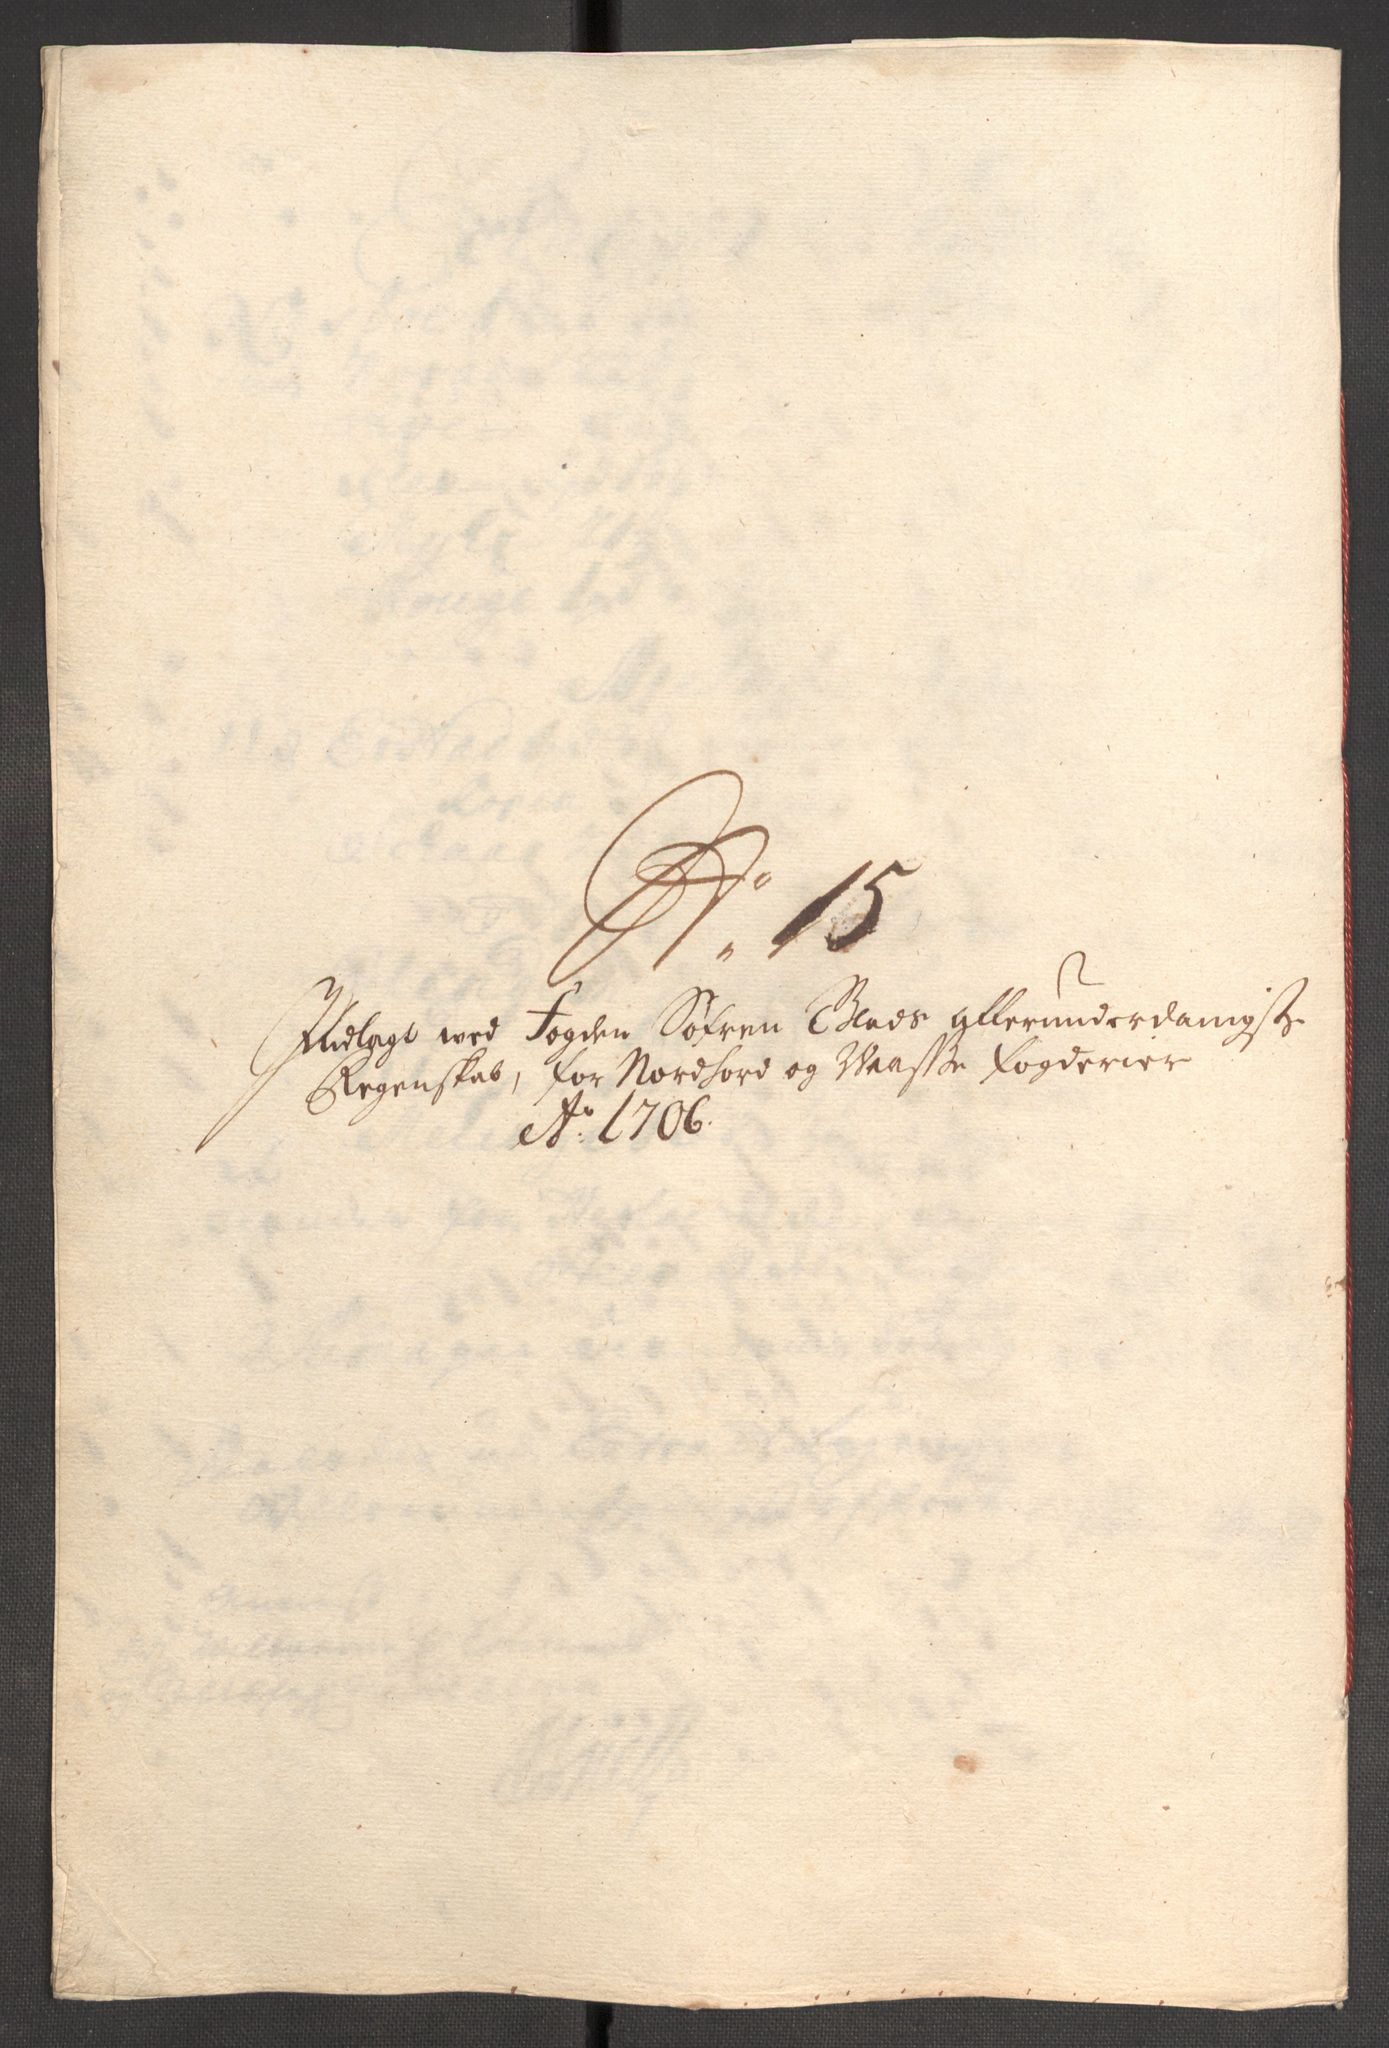 N.o 15
Indlagt ved Fogden Søfren Blads allerunderdanigste
Regenskab, for Nordhord og Waasse fogderier
Ao: 1706.